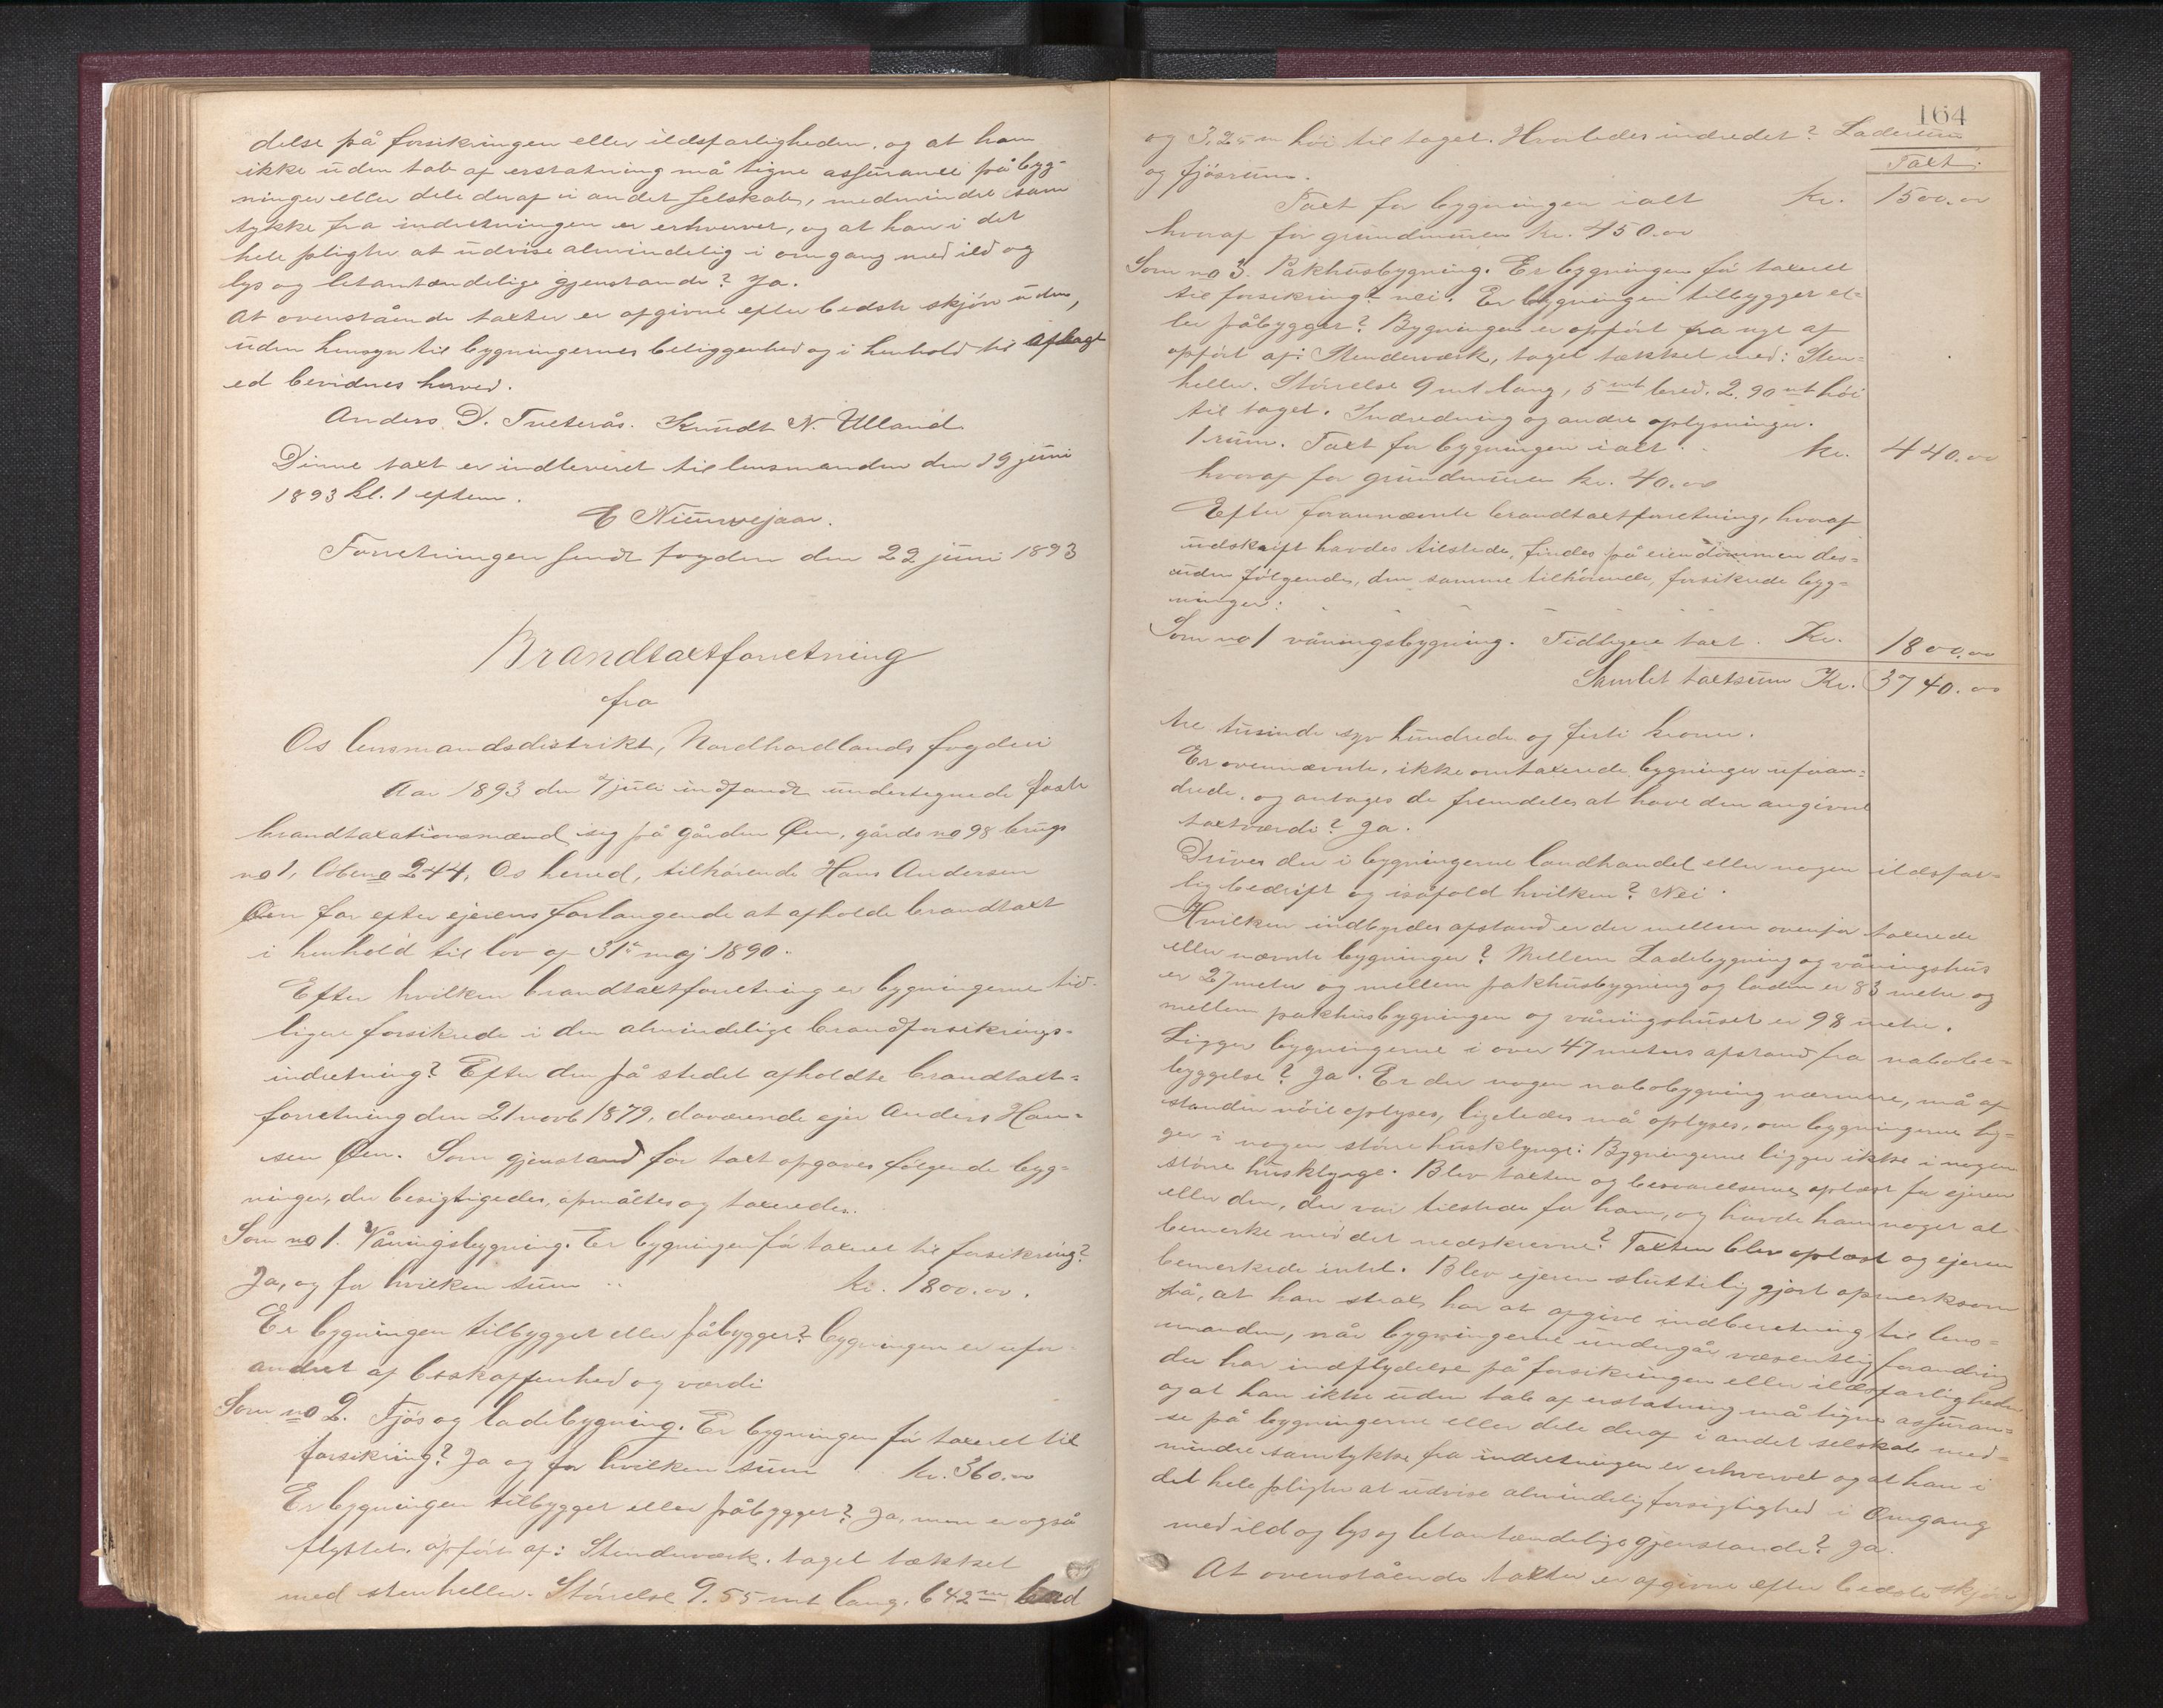 delse på forsikringen eller ildsfarligheden, og at han
ikke uden tab af erstatning må tigne assurance på byg-
ninger eller dele deraf i andet selskab, medmindre sam
tykke fra indretningen er erhvervet, og at han i det
hele pligter at udvise almindelig i omgang med ild og
lys og letantændelige gjenstande? Ja.
At ovenstående taxter er afgivne efter bedste skjön uden,
uden hensyn til bygningernes beliggenhed og i henhold til aflagt
ed bevidnes herved.
Anders D. Tveterås. Knudt N. Ulland
Dinne taxt er indleveret til lensmanden den 19 juni
1893 kl. 1 efterm.
E Nieuwejaar.
Forretningen sendt fogden den 22 juni 1893
Brandtaxtforretning
fra
Os lensmandsdistrikt, Nordhordlands fogderi
Aar 1893 den 7 juli indfandt undertegnede faste
brandtaxationsmænd sig på gården Øen, gårds no 98 brugs
no 1, löbeno 244, Os herred, tilhörende Hans Andersen
Øen for efter ejerens forlangende at afholde brandtaxt
i henhold til lov af 31te maj 1890.
Efter hvilken brandtaxtforretning er bygningerne tid-
ligere forsikrede i den almindelige brandforsikrings-
indretning? Efter den på stedet afholdte brandtaxt-
forretning den 21 novb 1879, daværende ejer Anders Han-
sen Øen. Som gjenstand för taxt opgaves følgende byg-
ninger, der besigtigedes, opmåltes og taxeredes.
Som no 1. Våningsbygning. Er bygningen för taxeret til forsikring?
Ja, og for hvilken sum .. kr. 1800.00.
Er bygningen tilbygget eller påbygget? bygningen er ufor-
andret af beskaffenhed og værdi
Som no 2. Fjös og ladebygning. Er bygningen för taxeret til
forsikring? Ja og for hvilken sum kr. 360.00
Er bygningen tilbygget eller påbygget? Ja, men er også
flyttet. opfört af: Stenderværk. taget tækket
med stenheller. Störrelse 9.55 mt lang, 6 42 m bred
164
og 3,25 m höi til taget. Hvorledes indredet? Laderum
og fjösrum. Taxt.
Taxt for bygningen ialt kr. 1500.00
hvoraf for grundmuren kr. 450.00
Som no 3. Pakhusbygning. Er bygningen för taxeret
til forsikring? nei. Er bygningen tilbygget el-
ler påbygget? Bygningen er opfört fra nyt af
opfört af: Stenderværk, taget tækket med: Sten-
heller. Störrelse 9 mt lang, 5 mt bred. 2.90 mt höi
til taget. Indredning og andre oplysninger.
1 rum. Taxt for bygningen ialt. kr. 440.00
hvoraf for grundmuren kr. 40.00
Efter forannævnte brandtaxtforretning, hvoraf
udskrift havdes tilstede, findes på eiendommen des-
uden følgende, den samme tilhörende, forsikrede byg-
ninger:
Som no 1 våningsbygning. Tidligere taxt. Kr. 1800.00
Samlet taxtsum Kr. 3740.00
tre tusinde syv hundrede og förti kroner.
Er ovennævnte, ikke omtaxerede bygninger uforan-
drede, og antages de fremdeles at have den angivne
taxtværdi? Ja.
Drives der i bygningerne landhandel eller nogen ildsfar-
lig bedrift og isåfald hvilken? Nei.
Hvilken indbyrdes afstand er der mellem ovenfor taxerede
eller nævnte bygninger? Mellem Ladebygning og våningshus
er 27 meter og mellem pakhusbygning og laden er 83 metre og
mellem pakhusbygningen og våningshuset er 98 metre.
Ligger bygningerne i over 47 meters afstand fra nabobe-
byggelse? Ja. Er der nogen nabobygning nærmere, må af
standen nöie oplyses, ligeledes må oplyses, om bygningerne lig-
ger i nogen störe husklynge: Bygningerne ligger ikke i nogen
störe husklynge. Blev taxten og besvarelserne oplæst for ejeren
eller den, der var tilstede for ham, og havde ham noget at
bemerke mod det nedskrevne? Taxten blev oplæst og ejeren
bemerkede intet. Blev ejeren sluttelig gjort opmerksom
på, at han strax har at opgive indberetning til lens-
manden, når bygningerne undergår væsentlig forandring
der har indflydelse på forsikringen eller ildsfarligheden
og at han ikke uden tab af erstatning må tigne assuran-
se på bygningerne eller dele deraf i andet selskab med-
mindre samtykke fra indretningen er erhvervet og at han i
det hele pligter at udvise almindelig forsigtighed i Omgang
med ild og lys og letantændelige gjenstande? Ja.
At ovenstående taxter er afgivne efter bedste skjön